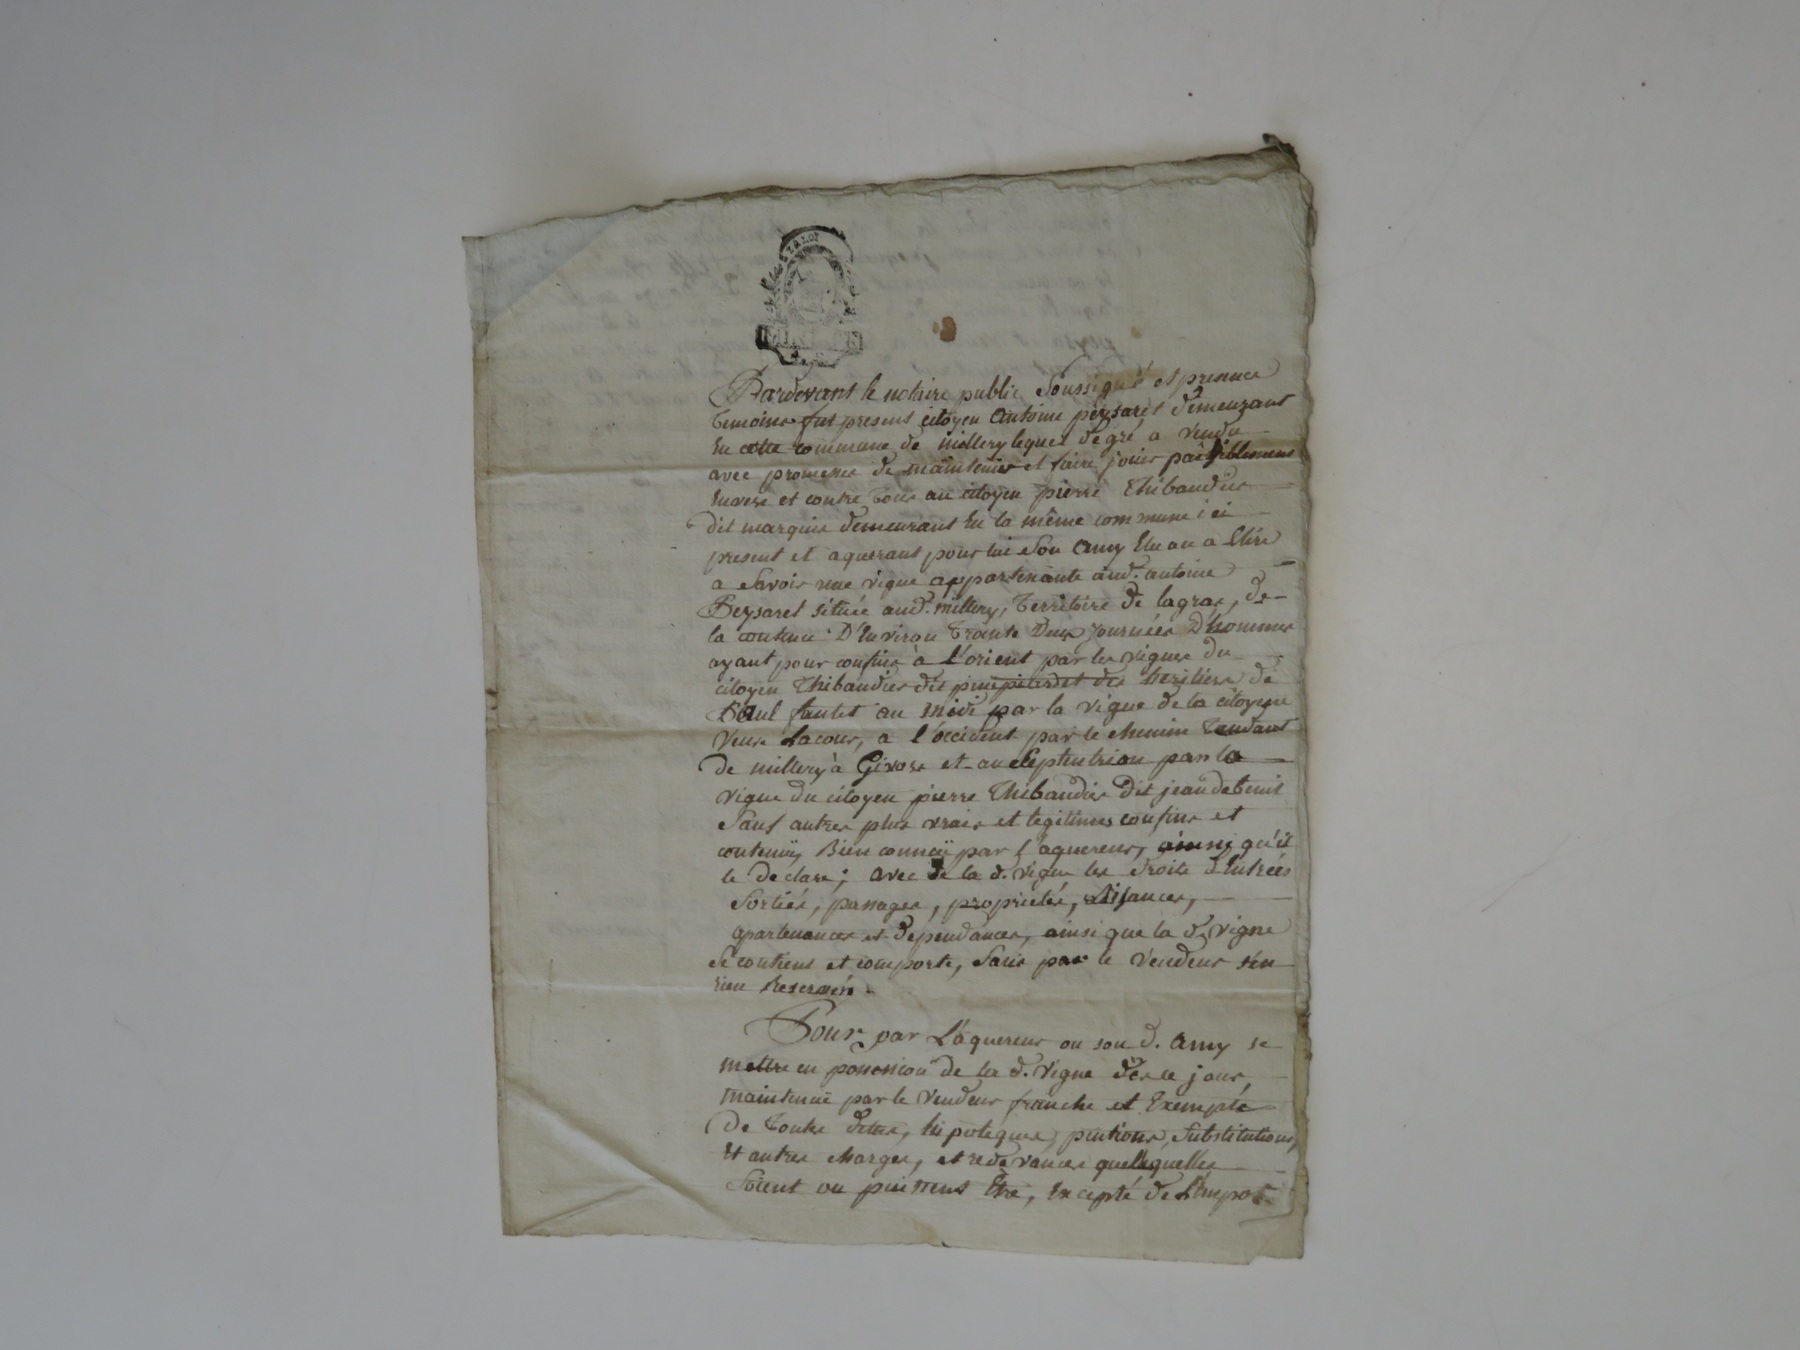 LA LOI
Pardevant le notaire public Soussigné et presence
Temoins fut present citoyen antoine peysaret demeurant
En cette commune de millery lequel de gré a vendu
avec promesse de maintenir et faire jouir paisiblement
Envers et contre Tous au citoyen pierre Thibaudier
dit marquis demeurant En la même commune ici
present et aquerant pour lui ou Son amy Elu ou a Elire
a Savoir une vigne appartenante aud. antoine
Peysaret située aud. millery, Territoire de la gras, de
la contenue D'Environ Trante Deux Journées D'hommes
ayant pour confins à l'orient par les vignes du
citoyen Thibaudier dit et des heritiers de
Paul fautet au midi par la vigne de la citoyene
Veuve Lacour, a l'occident par le chemin Tendant
de millery à Givors et au Septentrion par la
vigne du citoyen pierre Thibaudier Dit jean debenit
Sauf autres plus vrais et legitimes confins et
contenüe, Bien connüe par l'aquereur, ainsi qu'il
le declare; avec de la d. vigne les droits d'Entrées
Sorties, passages, proprietés, aisances,
apartenances et dependances, ainsi que la d. vigne
Se contient et comporte, Sans par le vendeur s'en
rien Reserver.
Pour par L'aquereur ou son d. amy se
mettre en possession de la d. vigne dès ce jour,
maintenue par le vendeur franche et Exempte
de Toutes dettes, hipoteques, pentions, Substitutions,
Et autres charges, et redevances quelleqüelles
Soient ou puissent Etre, Excepté de L'impot